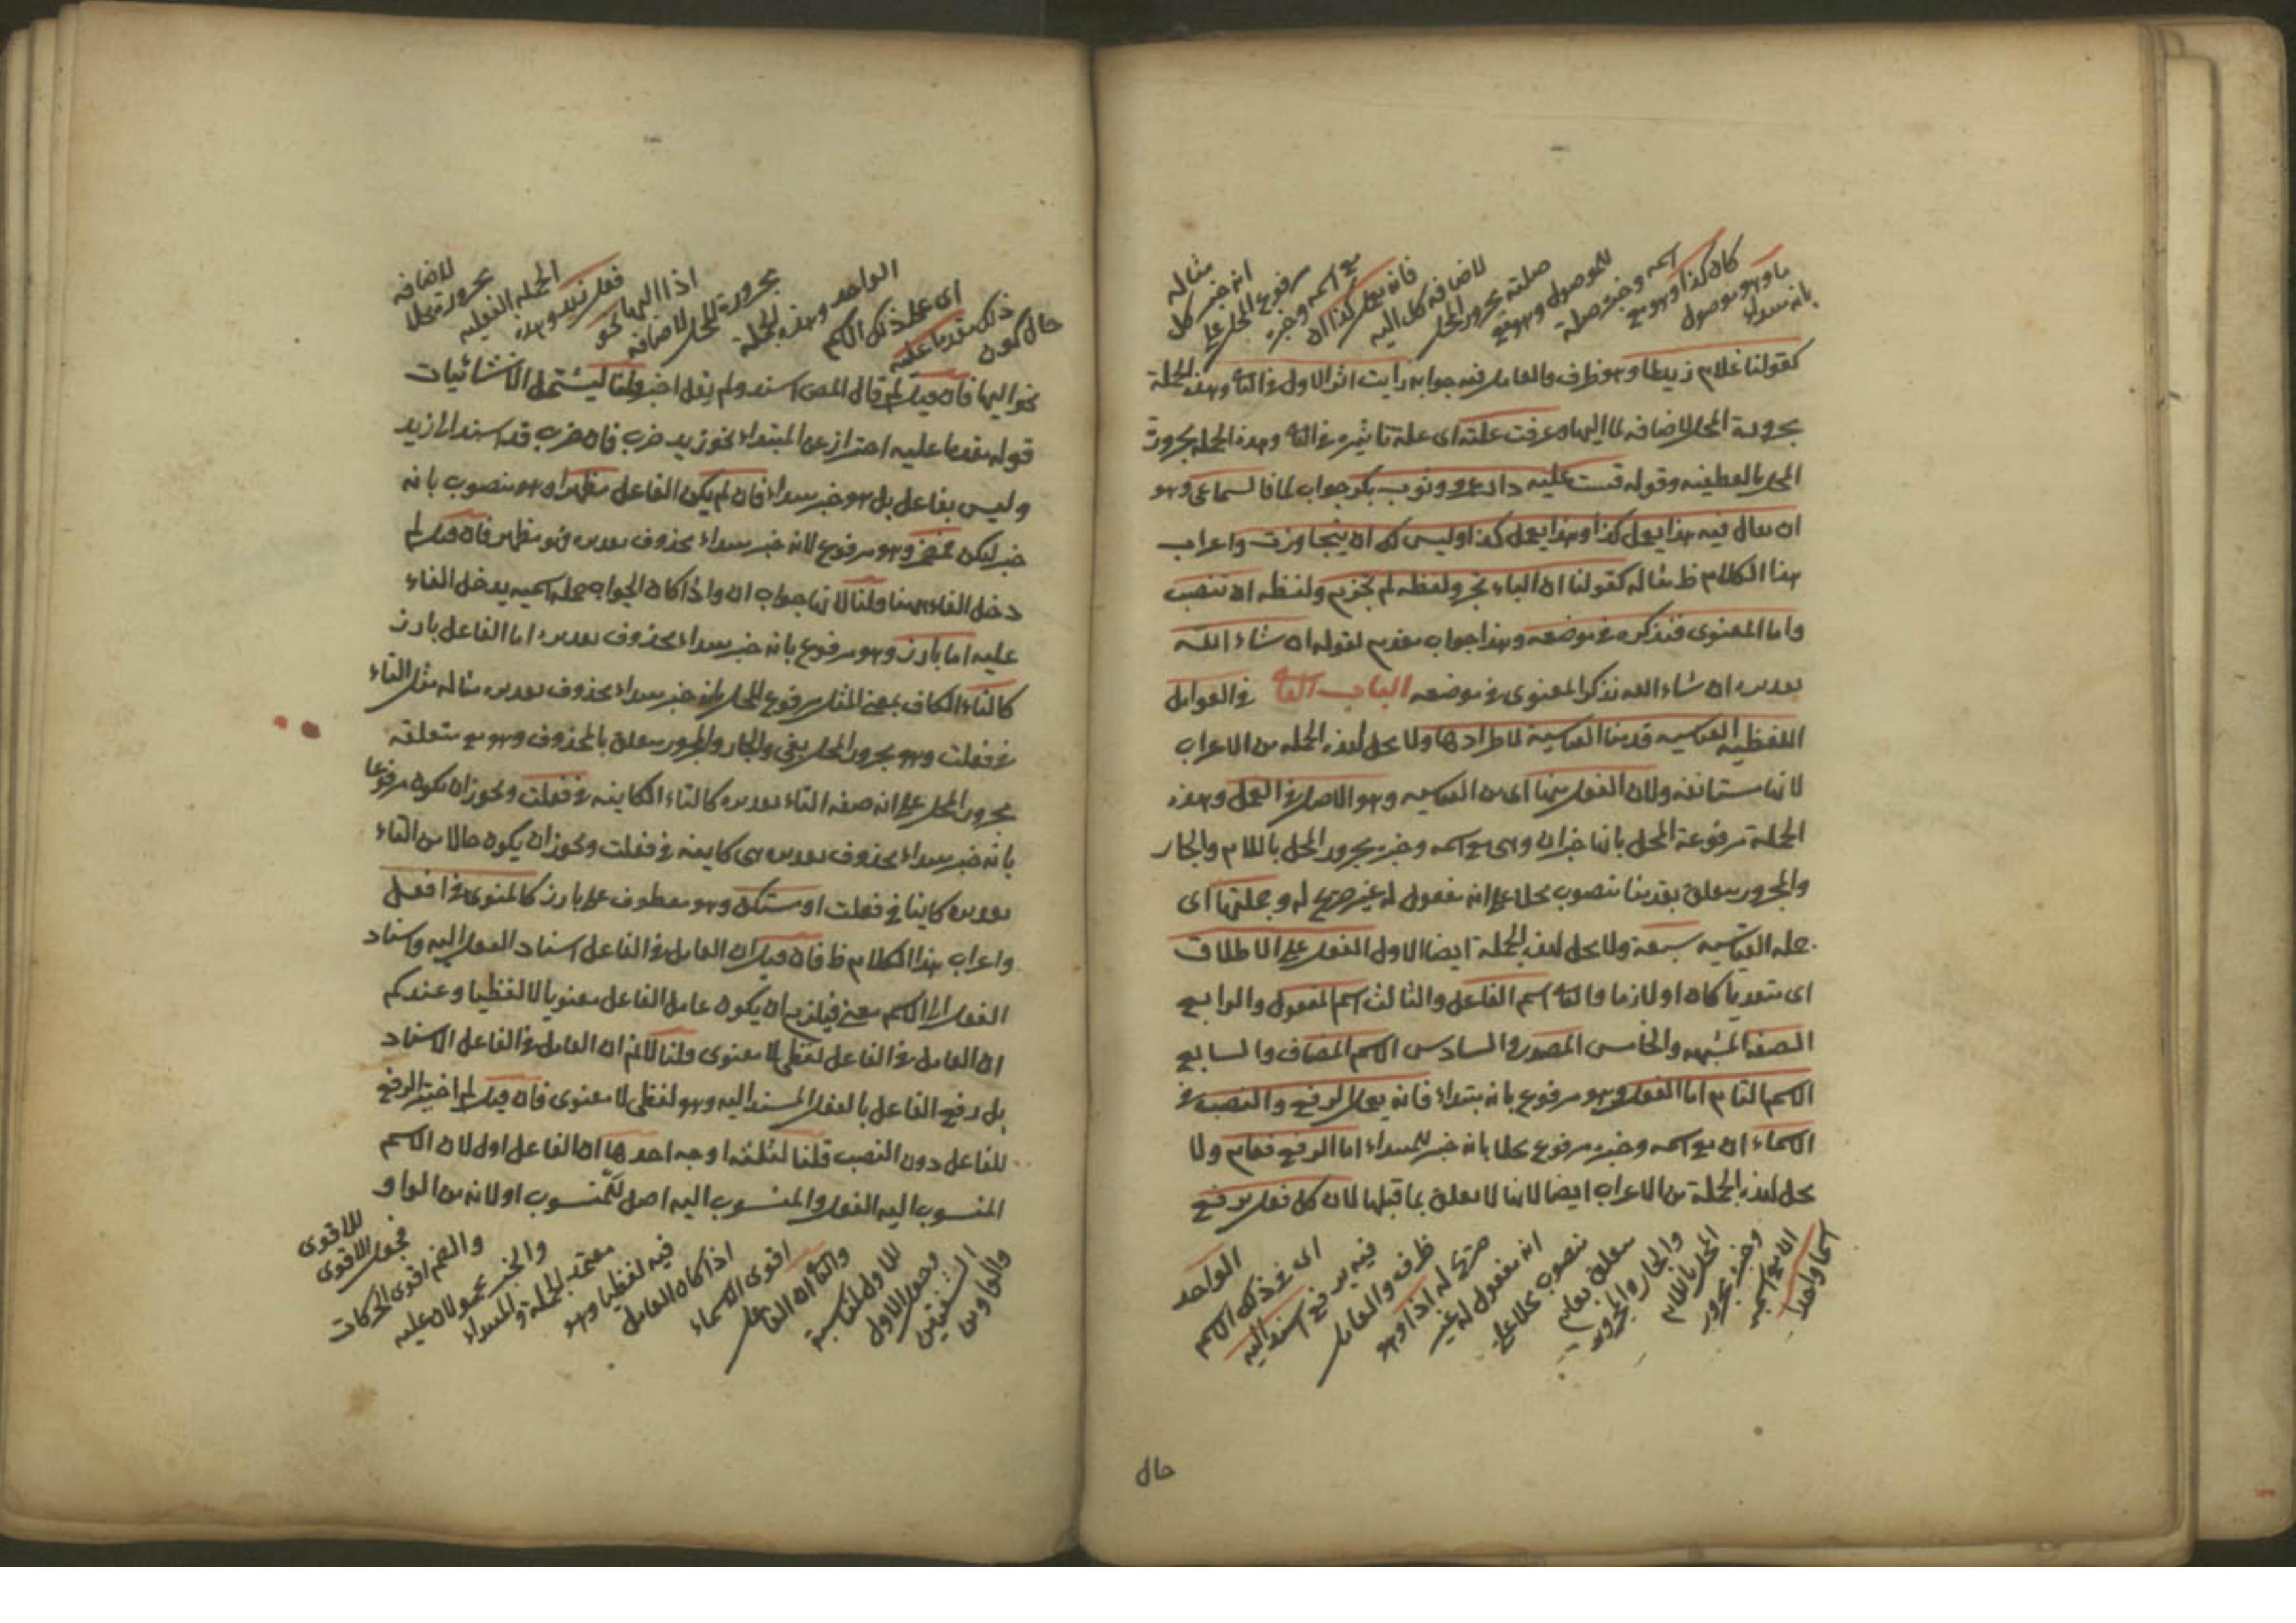 مثاله
انه خبر كل
مرفوع المحل على
مع اسمه وخبره
فانه يعمل كذا ان
لاضافه كل اليه
صلته مجرور المحل
للموصول وهو مع
اسمه وخبره صلة
كان كذا وهو مع
ما وهو موصول
بانه مبتداء
كقولنا غلام زيد لما وهو ظرف والعامل فيه جوابه رايت اثر الاول في الثاني وهذه الجملة
مجرورة المحل لاضافه لما اليها وعرفت علته اى علة تاثيره في الثاني وهذه الجمله مجرورة
المحل بالعطفيه وقوله قست عليه دار عمرو وثوب بكر جواب لما فالسماعى وهو
ان يقال فيه هذا يعمل كذا وهذا يعمل كذا وليس لك ان يتجاوزت واعراب
هذا الكلام ظ مثاله كقولنا ان الباء تجر ولفظه لم تجزم ولفظه ان تنصب
واما المعنوى فنذكره في موضعه وهذا جواب مقدم لقوله ان شاء الله
تقديره ان شاء الله نذكر المعنوى في موضعه الباب الثاني في العوامل
اللفظيه القياسيه قدمنا القياسية لاطرادها ولا محل لهذه الجمله من الاعراب
لانها مستانفه ولان الفعل منها اى من القياسيه وهو الاصل في العمل وهذه
الجملة مرفوعة المحل بانها خبر ان وهى مع اسمه وخبره مجرور المحل باللام والجار
والمجرور متعلق بقدمنا منصوب محلا على انه مفعول له غير صريح له وجملتها اى
جملة القياسيه سبعة ولا محل لهذه الجملة ايضا الاول الفعل على الاطلاق
اى متعديا كان او لازما والثاني اسم الفاعل والثالث اسم المفعول والرابع
الصفة المشبهه والخامس المصدر والسادس الاسم المضاف والسابع
الاسم التام اما الفعل وهو مرفوع بانه مبتداء فانه يعمل الرفع والنصب في
الاسماء ان مع اسمه وخبره مرفوع محلا بانه خبر للمبتداء اما الرفع فعام ولا
محل لهذه الجملة من الاعراب ايضا لانها لا تعلق بما قبلها لان كل فعل يرفع
اسما واحدا
لان مع اسمه
وخبره مجرور
المحل باللام
والجار والمجرور
متعلق بعام
منصوب محلا على
انه مفعول له غير
صريح له اذا وهو
ظرف والعامل
فيه يرفع اسند اليه
اى في ذلك الاسم
الواحد
حال
حال كون
ذلك مقدما عليه
اى على ذلك الاسم
الواحد وهذه الجملة
مجرورة المحل لاضافه
اذا اليها نحو
فعل زيد وهذه
الجملة الفعليه
مجرورة محلا
لاضافه
نحو اليها فان قيل لم قال المص اسند ولم يقل اخبر قلنا ليشتمل الانشائيات
قوله مقدما عليه احتراز عن المبتداء نحو زيد ضرب فان ضرب قد اسند الى زيد
وليس بفاعل بل هو خبر مبتداء فان لم يكن الفاعل مظهرا وهو منصوب بانه
خبر ليكن فمضمر وهو مرفوع لانه خبر مبتداء محذوف تقديره فهو مظهر فان قيل لم
دخل الفاء ههنا قلنا لانها جواب ان واذا كان الجواب جملة اسميه يدخل الفاء
عليه اما بارز وهو مرفوع بانه خبر مبتداء محذوف تقديره اما الفاعل بارز
كالتاء الكاف بمعنى المثل مرفوع المحل بانه خبر مبتداء محذوف تقديره مثاله مثل التاء
في فعلت وهو مجرور المحل بفى والجار والمجرور متعلق بالمحذوف وهو مع متعلقه
مجرور المحل على انه صفة التاء تقديره كالتاء الكاينه في فعلت ويجوز ان يكون مرفوعا
بانه خبر مبتداء محذوف تقديره هى كاينه في فعلت ويجوز ان يكون حالا من التاء
تقديره كاينا في فعلت او مستكن وهو معطوف على بارز كالمنوى في افعل
واعراب هذا الكلام ظ فان قيل ان العامل في الفاعل اسناد الفعل اليه واسناد
الفعل الى الاسم معنى فيلزم ان يكون عامل الفاعل معنويا لا لفظيا وعندكم
ان العامل في الفاعل لفظى لا معنوى قلنا لانم ان العامل في الفاعل الاسناد
بل رفع الفاعل بالفعل المسند اليه وهو لفظى لا معنوى فان قيل لم اختير الرفع
للفاعل دون النصب قلنا لثلثه اوجه احدها ان الفاعل اول لان الاسم
المنسوب اليه الفعل والمنسوب اليه اصل للمنسوب اولانه من الواو
والواو من
الشفتين
وجعل الاول
للاول لمناسبة
والثاني ان الفاعل
اقوى الاسماء
اذا كان العامل
فيه لفظيا وهو
معتمد الجملة والمبتداء
والخبر محمولان عليه
والضم اقوى الحركات
فجعل الاقوى
للاقوى